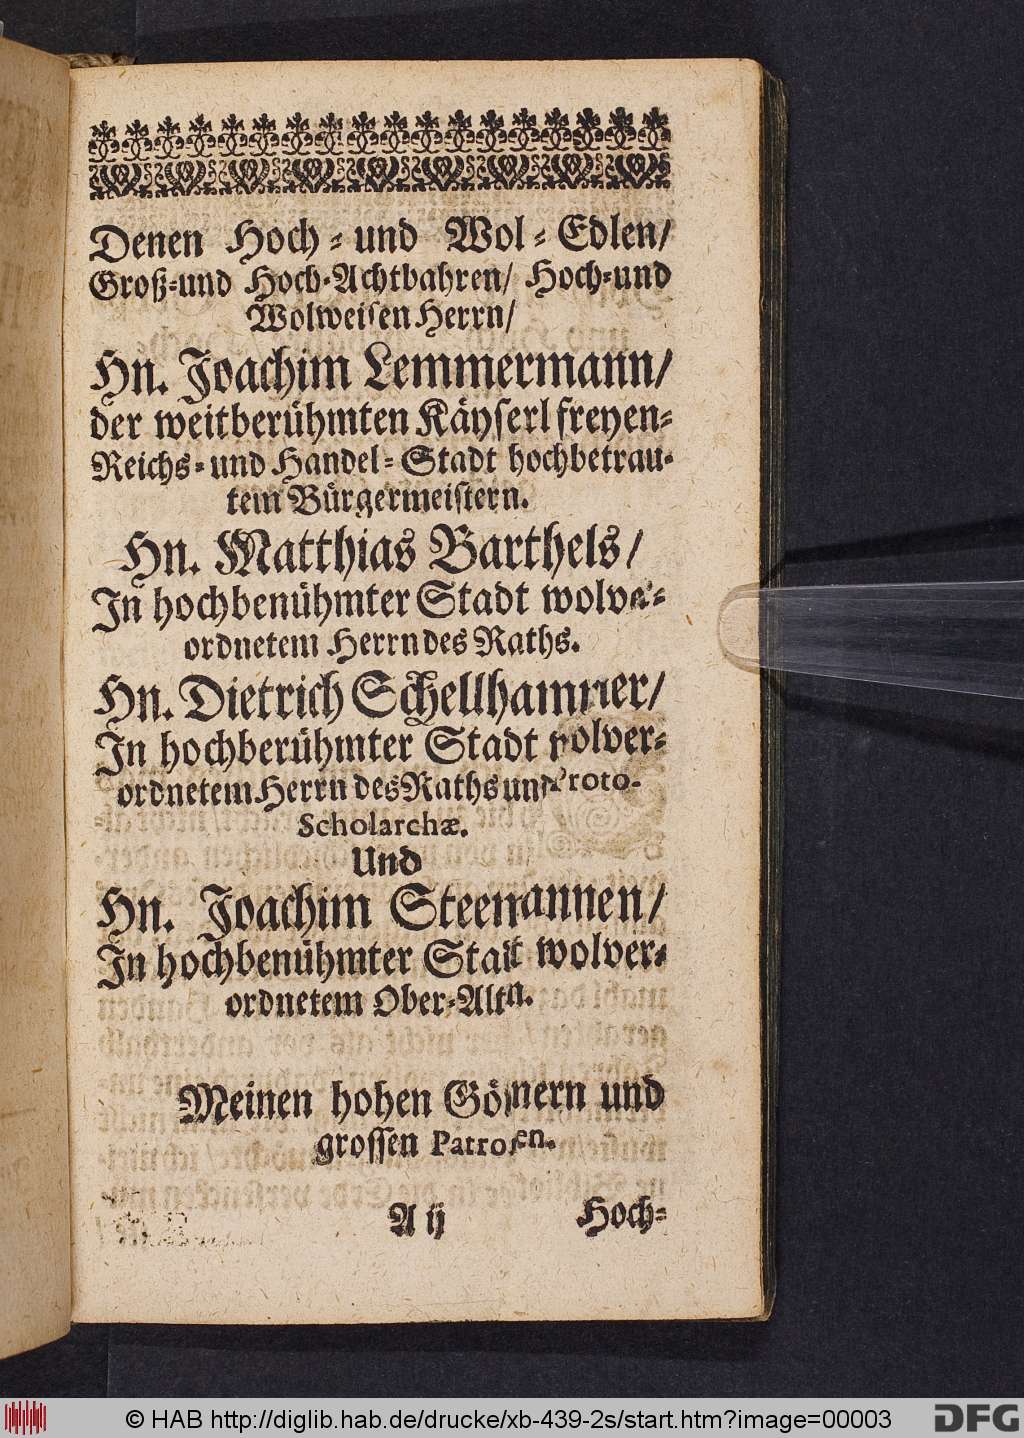 Denen Hoch- und Wol-Edlen/
Groß-und Hoch-Achtbahren/ Hoch-und
Wolweisen Herrn/
Hn. Joachim Lemmermann/
der weitberühmten Käyserl freyen-
Reichs- und Handel-Stadt hochbetrau-
tem Bürgermeistern.
Hn. Matthias Barthels/
In hochbenühmter Stadt wolver-
ordnetem Herrn des Raths.
Hn. Dietrich Schellhammer/
In hochberühmter Stadt wolver-
ordnetem Herrn des Raths und Proto-
Scholarchæ.
Und
Hn. Joachim
In hochbenühmter Stadt wolver-
ordnetem Ober-Alten.
Meinen hohen Gönnern und
grossen Patronen.
A ij Hoch-
© HAB http://diglib.hab.de/drucke/xb-439-2s/start.htm?image=00003
DFG